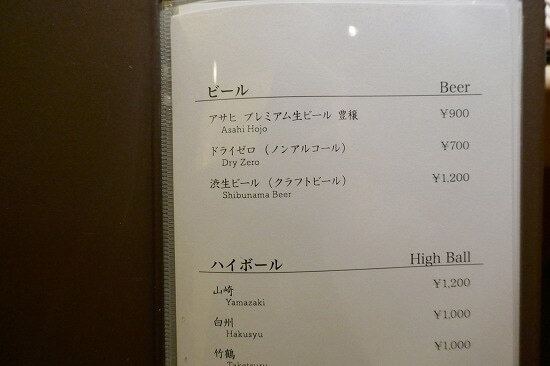 ビール Beer
アサヒ プレミアム生ビール 豊穣 ¥900
Asahi Hojo
ドライゼロ (ノンアルコール) ¥700
Dry Zero
渋生ビール (クラフトビール) ¥1,200
Shibunama Beer
ハイボール High Ball
山崎 ¥1,200
Yamazaki
白州 ¥1,000
Hakusyu
竹鶴 ¥1,000
Taketsuru